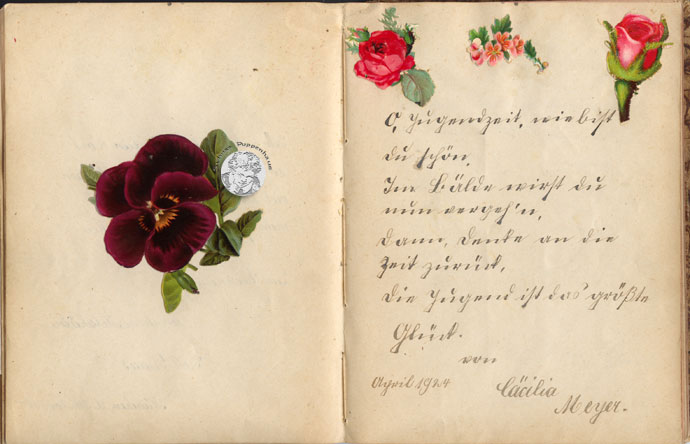 O, Jugendzeit, wie bist
du schön,
Im Bälde wirst du
nun vergeh'n,
dann, denke an die
Zeit zurück,
die Jugend ist das größte
Glück.
von
April 1924
Cäcilia
Meyer.
Puppenhaus